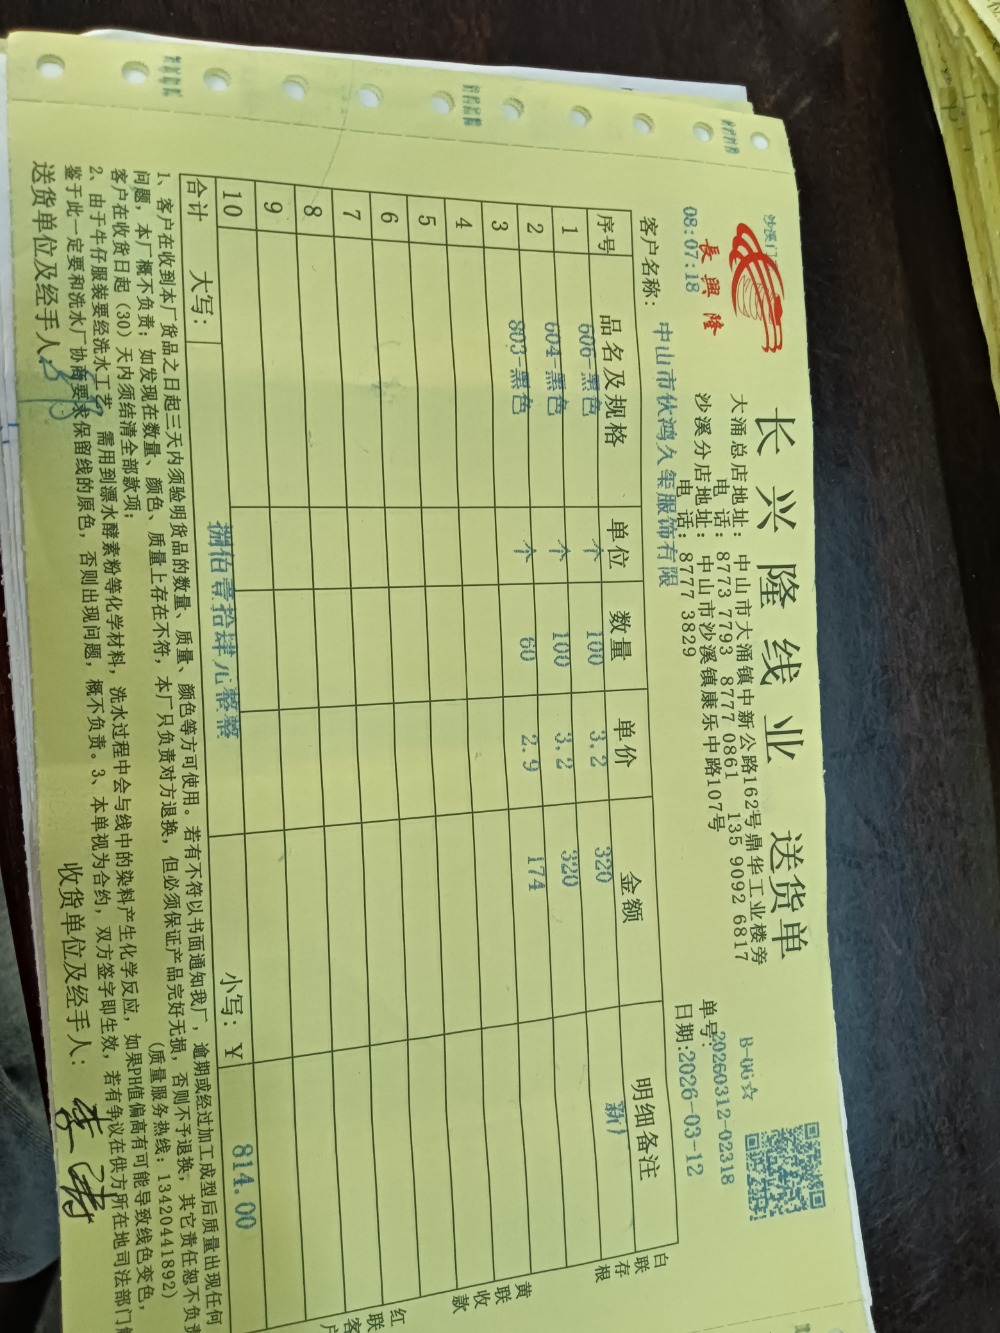 长兴隆线业 送货单
沙溪门
長興隆
08:07:18
B-QG☆
大涌总店地址: 中山市大涌镇中新公路162号鼎华工业楼旁
电 话: 8773 7793 8777 0861 135 9092 6817
沙溪分店地址: 中山市沙溪镇康乐中路107号
电 话: 8777 3829
单号: 20260312-02318
日期:2026-03-12
客户名称: 中山市伙鸿久玺服饰有限
序号 品名及规格 单位 数量 单价 金额 明细备注
1 606-黑色 个 100 3.2 320 新厂
2 604-黑色 个 100 3.2 320
3 803-黑色 个 60 2.9 174
4
5
6
7
8
9
10
合计 大写: 捌佰壹拾肆元整整 小写: ¥ 814.00
白联存根
黄联收款
红联客户
1、客户在收到本厂货品之日起三天内须验明货品的数量、质量、颜色等方可使用。若有不符以书面通知我厂, 逾期或经过加工成型后质量出现任何
问题, 本厂概不负责; 如发现在数量、颜色、质量上存在不符, 本厂只负责对方退换, 但必须保证产品完好无损, 否则不予退换, 其它责任恕不负责
客户在收货日起 (30) 天内须结清全部款项; (质量服务热线: 13420441892)
2、由于牛仔服装要经洗水工艺, 需用到漂水酵素粉等化学材料, 洗水过程中会与线中的染料产生化学反应, 如果PH值偏高有可能导致线色变色,
鉴于此一定要和洗水厂协商要求保留线的原色, 否则出现问题, 概不负责。3、本单视为合约, 双方签字即生效, 若有争议在供方所在地司法部门
送货单位及经手人: 收货单位及经手人: 李涛